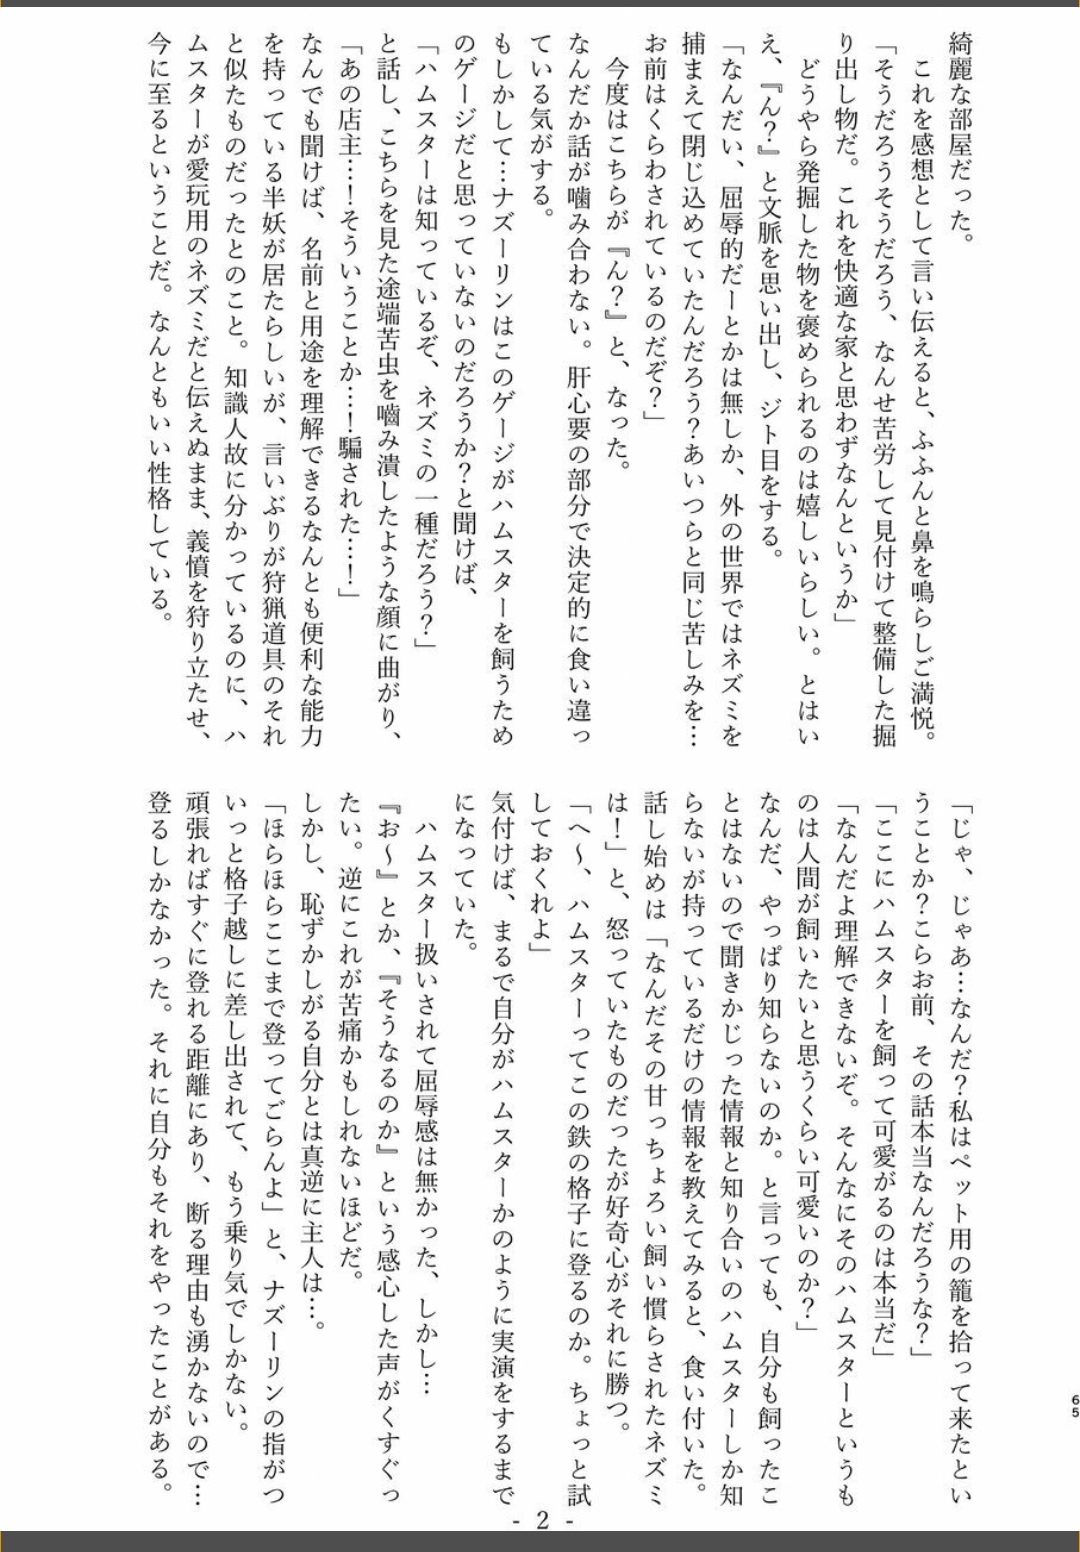 綺麗な部屋だった。
これを感想として言い伝えると、ふふんと鼻を鳴らしご満悦。
「そうだろうそうだろう、なんせ苦労して見付けて整備した掘
り出し物だ。これを快適な家と思わずなんというか」
どうやら発掘した物を褒められるのは嬉しいらしい。とはい
え、『ん？』と文脈を思い出し、ジト目をする。
「なんだい、屈辱的だーとかは無しか、外の世界ではネズミを
捕まえて閉じ込めていたんだろう？あいつらと同じ苦しみを…
お前はくらわされているのだぞ？」
今度はこちらが『ん？』と、なった。
なんだか話が噛み合わない。肝心要の部分で決定的に食い違っ
ている気がする。
もしかして…ナズーリンはこのゲージがハムスターを飼うため
のゲージだと思っていないのだろうか？と聞けば、
「ハムスターは知っているぞ、ネズミの一種だろう？」
と話し、こちらを見た途端苦虫を嚙み潰したような顔に曲がり、
「あの店主…！そういうことか…！騙された…！」
なんでも聞けば、名前と用途を理解できるなんとも便利な能力
を持っている半妖が居たらしいが、言いぶりが狩猟道具のそれ
と似たものだったとのこと。知識人故に分かっているのに、ハ
ムスターが愛玩用のネズミだと伝えぬまま、義憤を狩り立たせ、
今に至るということだ。なんともいい性格している。
「じゃ、じゃあ…なんだ？私はペット用の籠を拾って来たとい
うことか？こらお前、その話本当なんだろうな？」
「ここにハムスターを飼って可愛がるのは本当だ」
「なんだよ理解できないぞ。そんなにそのハムスターというも
のは人間が飼いたいと思うくらい可愛いのか？」
なんだ、やっぱり知らないのか。と言っても、自分も飼ったこ
とはないので聞きかじった情報と知り合いのハムスターしか知
らないが持っているだけの情報を教えてみると、食い付いた。
話し始めは「なんだその甘っちょろい飼い慣らされたネズミ
は！」と、怒っていたものだったが好奇心がそれに勝つ。
「へ〜、ハムスターってこの鉄の格子に登るのか。ちょっと試
しておくれよ」
気付けば、まるで自分がハムスターかのように実演をするまで
になっていた。
ハムスター扱いされて屈辱感は無かった、しかし…
『お〜』とか、『そうなるのか』という感心した声がくすぐっ
たい。逆にこれが苦痛かもしれないほどだ。
しかし、恥ずかしがる自分とは真逆に主人は…。
「ほらほらここまで登ってごらんよ」と、ナズーリンの指がつ
いっと格子越しに差し出されて、もう乗り気でしかない。
頑張ればすぐに登れる距離にあり、断る理由も湧かないので…
登るしかなかった。それに自分もそれをやったことがある。
65
- 2 -